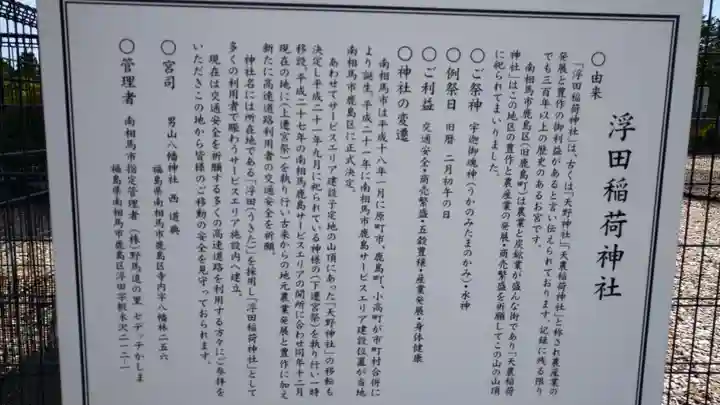 浮田稲荷神社
○由来
「浮田稲荷神社」は、古くは「天野神社」「天農稲荷神社」と称され農産業の
発展と豊作の御利益があると言い伝えられております。記録に残る限り
でも三百年以上の歴史のあるお宮です。
南相馬市鹿島区(旧鹿島町)は農業と炭鉱業が盛んな街であり「天農稲荷
神社」はこの地区の豊作と農産業の発展・商売繁盛を祈願してこの山の山頂
に祀られてまいりました。
○ご祭神 宇迦御魂神(うかのみたまのかみ)・水神
○例祭日 旧暦 二月初午の日
○ご利益 交通安全・商売繁盛・五穀豊穣・産業発展・身体健康
○神社の変遷
南相馬市は平成十八年一月に原町市、鹿島町、小高町が市町村合併に
より誕生。平成二十一年に南相馬市鹿島サービスエリア建設位置が当地
南相馬市鹿島区に正式決定。
あわせてサービスエリア建設予定地の山頂にあった「天野神社」の移転も
決定し平成二十一年九月に祀られている神様の(下遷宮祭)を執り行い一時
移設。平成二十七年の南相馬鹿島サービスエリアの開所に合わせ同年十二月
現在の地に(上遷宮祭)を執り行い古来からの地元農業発展と豊作に加え
新たに高速道路利用者の交通安全を祈願。
神社名には所在地である「浮田(うきた)」を採用し「浮田稲荷神社」として
多くの利用者で賑わうサービスエリア施設内へ建立。
現在は交通安全を祈願する多くの高速道路を利用する方々にご参拝を
いただきこの地から皆様のご移動の安全を見守っておられます。
○宮司 男山八幡神社 西 道典
福島県南相馬市鹿島区寺内字八幡林二五六
○管理者 南相馬市指定管理者 (株)野馬追の里 セデッテかしま
福島県南相馬市鹿島区浮田字椴木沢二-二-一